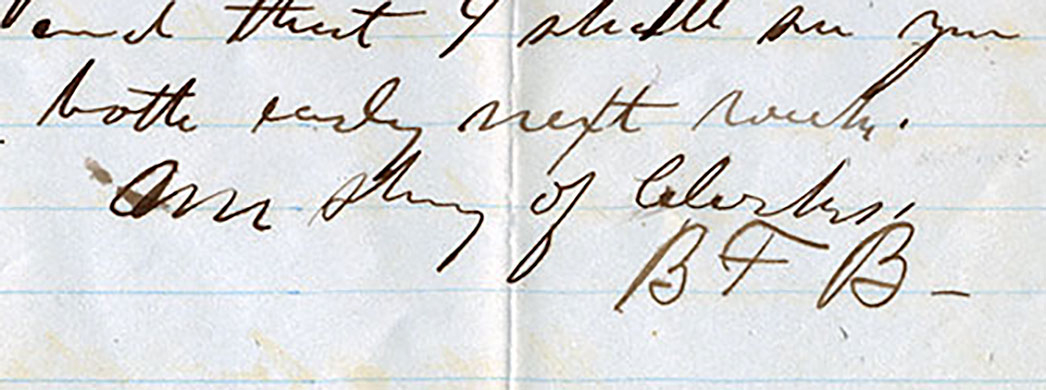 and that I shall see you
both early next week.
Am of Clerks.
B F B -